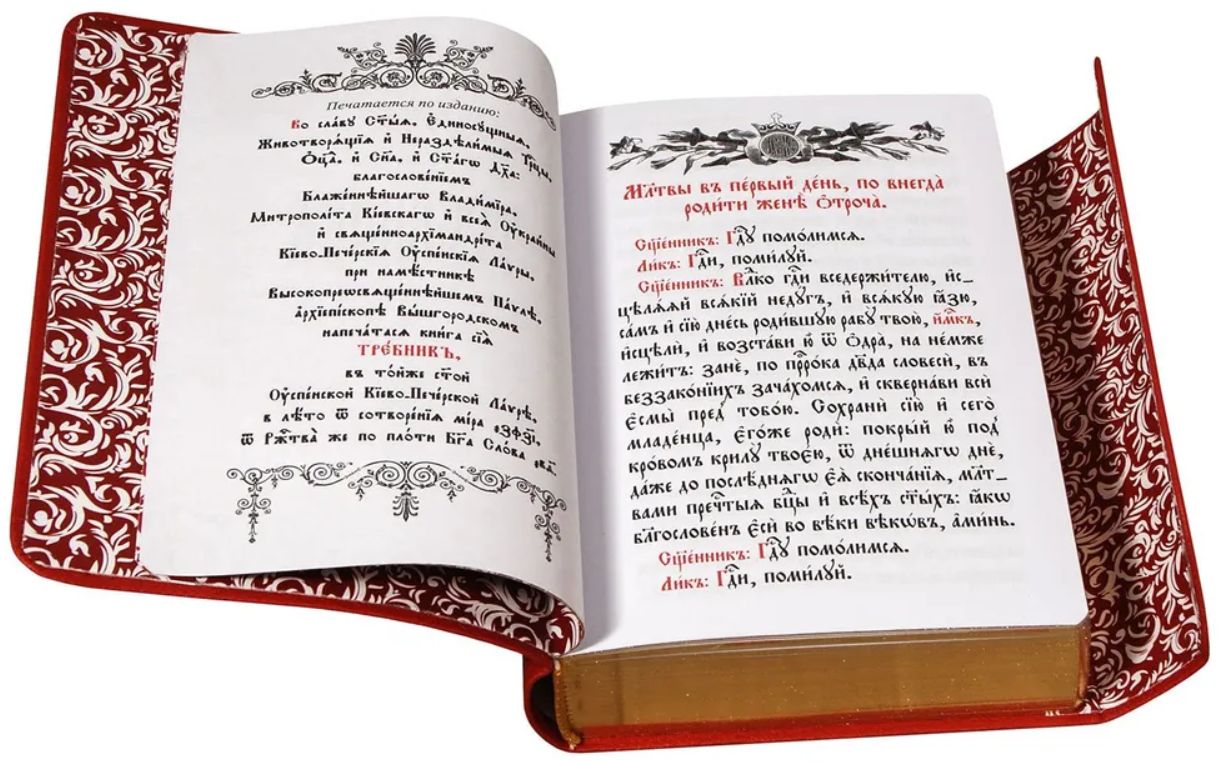 Печатается по изданию:
Во славу Ст҃ы́ѧ, Є҆диносꙋ́щныѧ,
Животворѧ́щїѧ и҆ Нераздѣ́лимыѧ Трⷪ҇цы,
Ѻ҆ц҃а̀, и҆ Сн҃а, и҆ Ст҃а́гѡ Дх҃а:
благослове́нїемъ
Блаже́ннѣйшагѡ Влади́мїра,
Митрополі́та Кі́евскагѡ и҆ всеѧ̀ Оу҆краи́ны
и҆ свѧще́нноархїмандрі́та
Кі́ево-Пече́рскїѧ Оу҆спе́нскїѧ Ла́ѵры,
при намѣ́стникѣ
Высокопреѡсвѧще́ннѣйшемъ Па́ѵлѣ,
а҆рхїепі́скопѣ Вы́шгородскомъ
напеча́тасѧ кни́га сїѧ̀
ТРЕ́БНИКЪ,
въ то́йже ст҃о́й
Оу҆спе́нской Кі́ево-Пече́рской Ла́ѵрѣ,
в лѣ́то ѿ сотворе́нїѧ мі́ра ҂зфз҃і,
ѿ Рж҃тва̀ же по пло́ти Бг҃а Сло́ва
Мл҃твы въ пе́рвый де́нь, по внегда̀
роди́ти женѣ̀ ѻ҆троча̀.
Сщ҃е́нникъ: Гдⷭ҇ꙋ помо́лимсѧ.
Ли́къ: Гдⷭ҇и, поми́лꙋй.
Сщ҃е́нникъ: Влⷣко гдⷭ҇и вседержи́телю, и҆с_
цѣлѧ́ѧй всѧ́кїй недꙋ́гъ, и҆ всѧ́кꙋю ꙗ҆́зю,
са́мъ и҆ сїю̀ дне́сь роди́вшꙋю рабꙋ̀ твою̀, и҆́м҃къ,
и҆сцѣлѝ, и҆ возста́ви ю҆̀ ѿ ѻ҆дра̀, на не́мже
лежи́тъ: занѐ, по прⷪ҇ро́ка дв҃да словесѝ, въ
беззако́нїихъ зача́хомсѧ, и҆ скверна́ви всѝ
є҆смы̀ пред̾ тобо́ю. Сохранѝ сїю̀ и҆ сего̀
младе́нца, є҆го́же родѝ: покры́й ю҆̀ под̾
кро́вомъ крилꙋ̀ твоє́ю, ѿ дне́шнѧгѡ днѐ,
да́же до послѣ́днѧгѡ є҆ѧ̀ сконча́нїѧ, мл҃т_
вами пречⷭ҇тыѧ бцⷣы и҆ всѣ́хъ ст҃ы́хъ: ꙗ҆́кѡ
блгⷭ҇ослове́нъ є҆сѝ во вѣ́ки вѣкѡ́въ, а҆ми́нь.
Сщ҃е́нникъ: Гдⷭ҇ꙋ помо́лимсѧ.
Ли́къ: Гдⷭ҇и, поми́лꙋй.